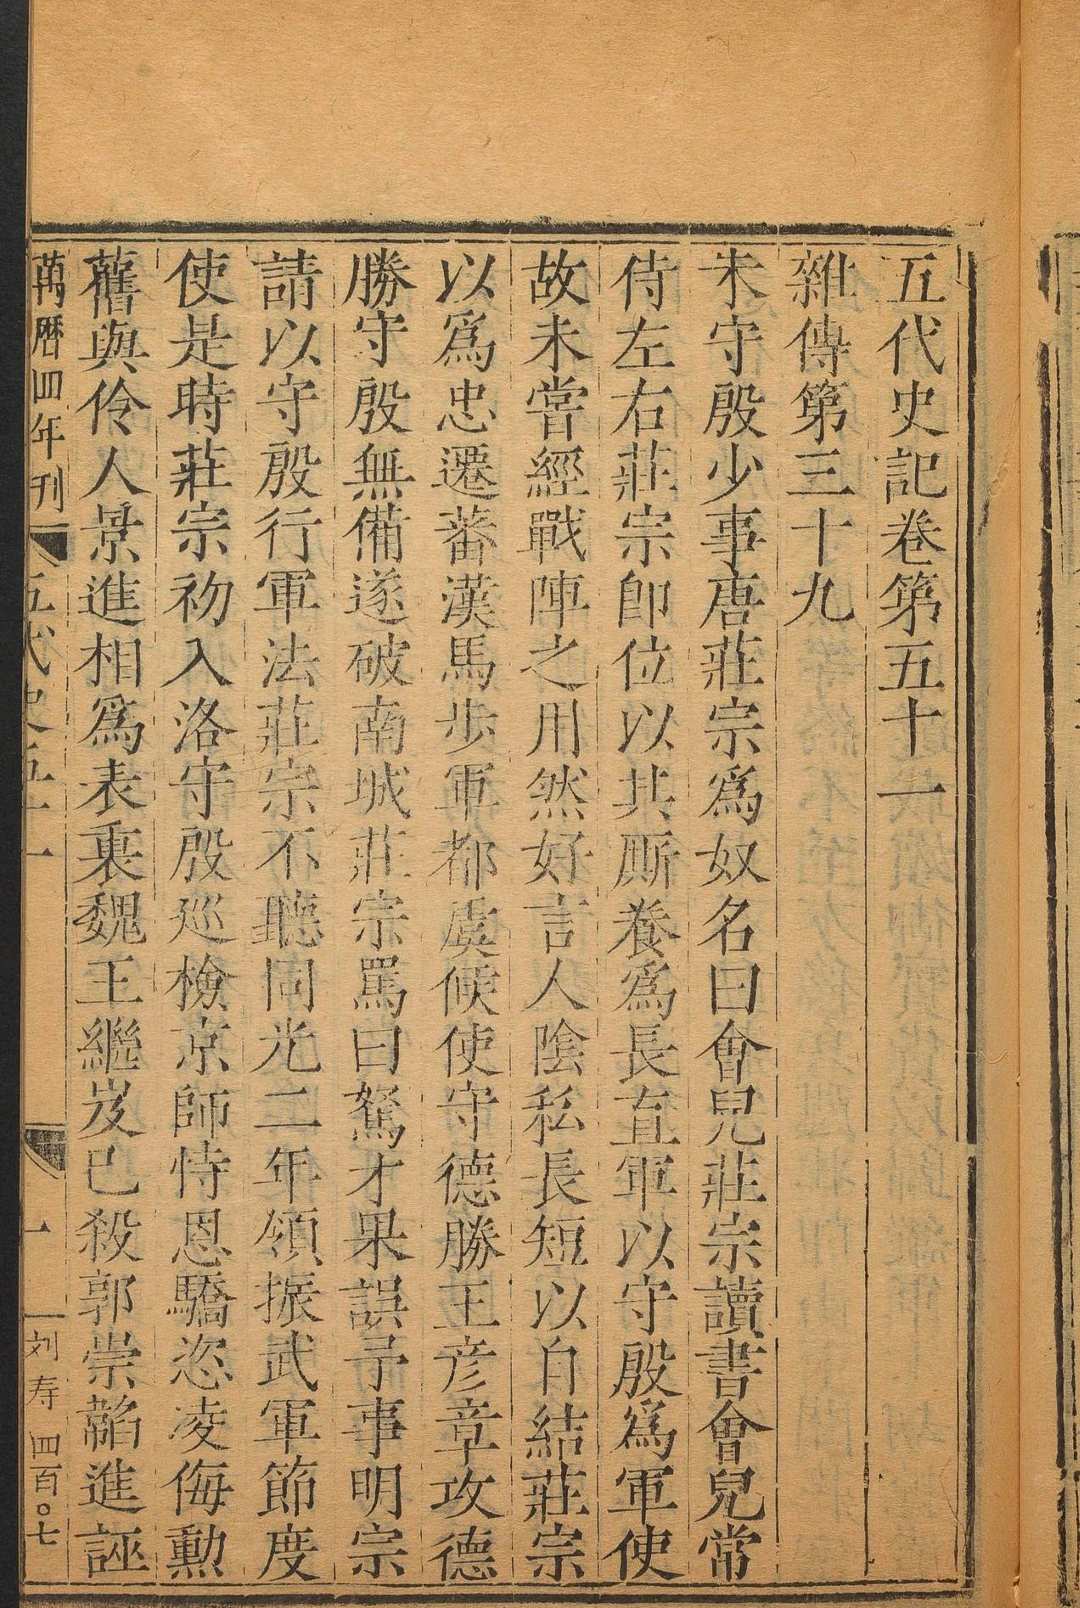 五代史記卷第五十一
雜傳第三十九
朱守殷少事唐莊宗爲奴名曰會兒莊宗讀書會兒常
侍左右莊宗即位以其厮養爲長直軍以守殷爲軍使
故未嘗經戰陣之用然好言人陰私長短以自結莊宗
以爲忠遷蕃漢馬步軍都虞候使守德勝王彦章攻德
勝守殷無備遂破南城莊宗罵曰駑才果誤予事明宗
請以守殷行軍法莊宗不聽同光二年領振武軍節度
使是時莊宗初入洛守殷巡檢京師恃恩驕恣凌侮勲
舊與伶人景進相爲表裏魏王繼岌已殺郭崇韜進誣
萬曆四年刊
五代史五十一
一
刘寿
四百〇七